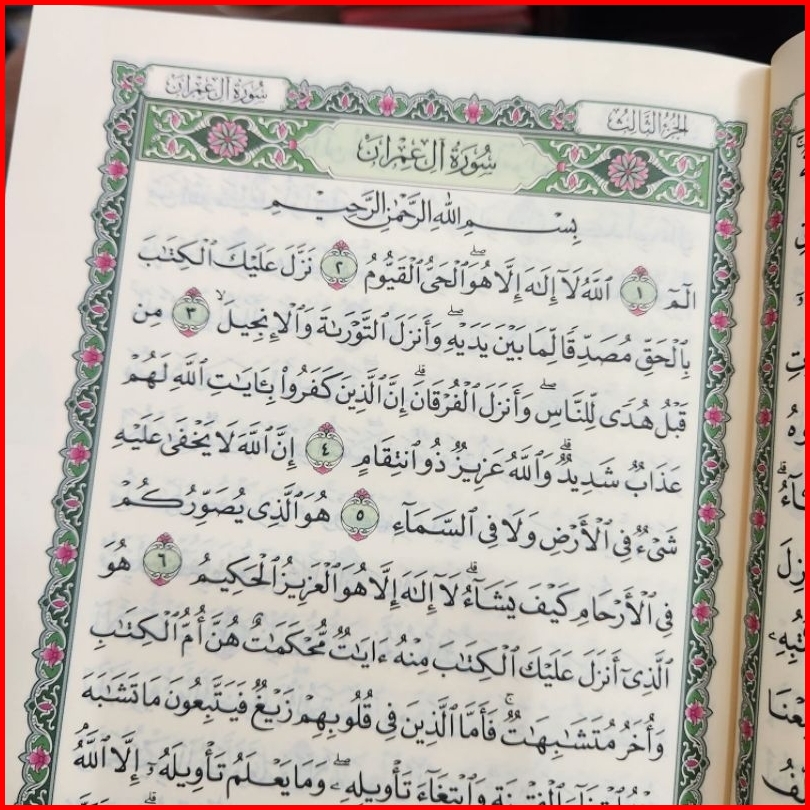 سُورَةُ آلِ عِمْرَانَ
الجُزْءُ الثَّالِثُ
سُورَةُ آلِ عِمْرَانَ
بِسْمِ اللَّهِ الرَّحْمَٰنِ الرَّحِيمِ
الٓمٓ ١ ٱللَّهُ لَآ إِلَٰهَ إِلَّا هُوَۖ ٱلْحَىُّ ٱلْقَيُّومُ ٢ نَزَّلَ عَلَيْكَ ٱلْكِتَٰبَ
بِٱلْحَقِّ مُصَدِّقًا لِّمَا بَيْنَ يَدَيْهِۖ وَأَنزَلَ ٱلتَّوْرَىٰةَ وَٱلْإِنجِيلَۙ ٣ مِن
قَبْلُ هُدًى لِّلنَّاسِۖ وَأَنزَلَ ٱلْفُرْقَانَۗ إِنَّ ٱلَّذِينَ كَفَرُوا۟ بِـَٔايَٰتِ ٱللَّهِ لَهُمْ
عَذَابٌ شَدِيدٌۗ وَٱللَّهُ عَزِيزٌ ذُو ٱنتِقَامٍ ٤ إِنَّ ٱللَّهَ لَا يَخْفَىٰ عَلَيْهِ
شَىْءٌ فِى ٱلْأَرْضِ وَلَا فِى ٱلسَّمَآءِ ٥ هُوَ ٱلَّذِى يُصَوِّرُكُمْ
فِى ٱلْأَرْحَامِ كَيْفَ يَشَآءُۗ لَآ إِلَٰهَ إِلَّا هُوَ ٱلْعَزِيزُ ٱلْحَكِيمُ ٦ هُوَ
ٱلَّذِىٓ أَنزَلَ عَلَيْكَ ٱلْكِتَٰبَ مِنْهُ ءَايَٰتٌ مُّحْكَمَٰتٌ هُنَّ أُمُّ ٱلْكِتَٰبِ
وَأُخَرُ مُتَشَٰبِهَٰتٌۚ فَأَمَّا ٱلَّذِينَ فِى قُلُوبِهِمْ زَيْغٌ فَيَتَّبِعُونَ مَا تَشَٰبَهَ
مِنْهُ ٱبْتِغَآءَ ٱلْفِتْنَةِ وَٱبْتِغَآءَ تَأْوِيلِهِۦۖ وَمَا يَعْلَمُ تَأْوِيلَهُۥٓ إِلَّا ٱللَّهُ